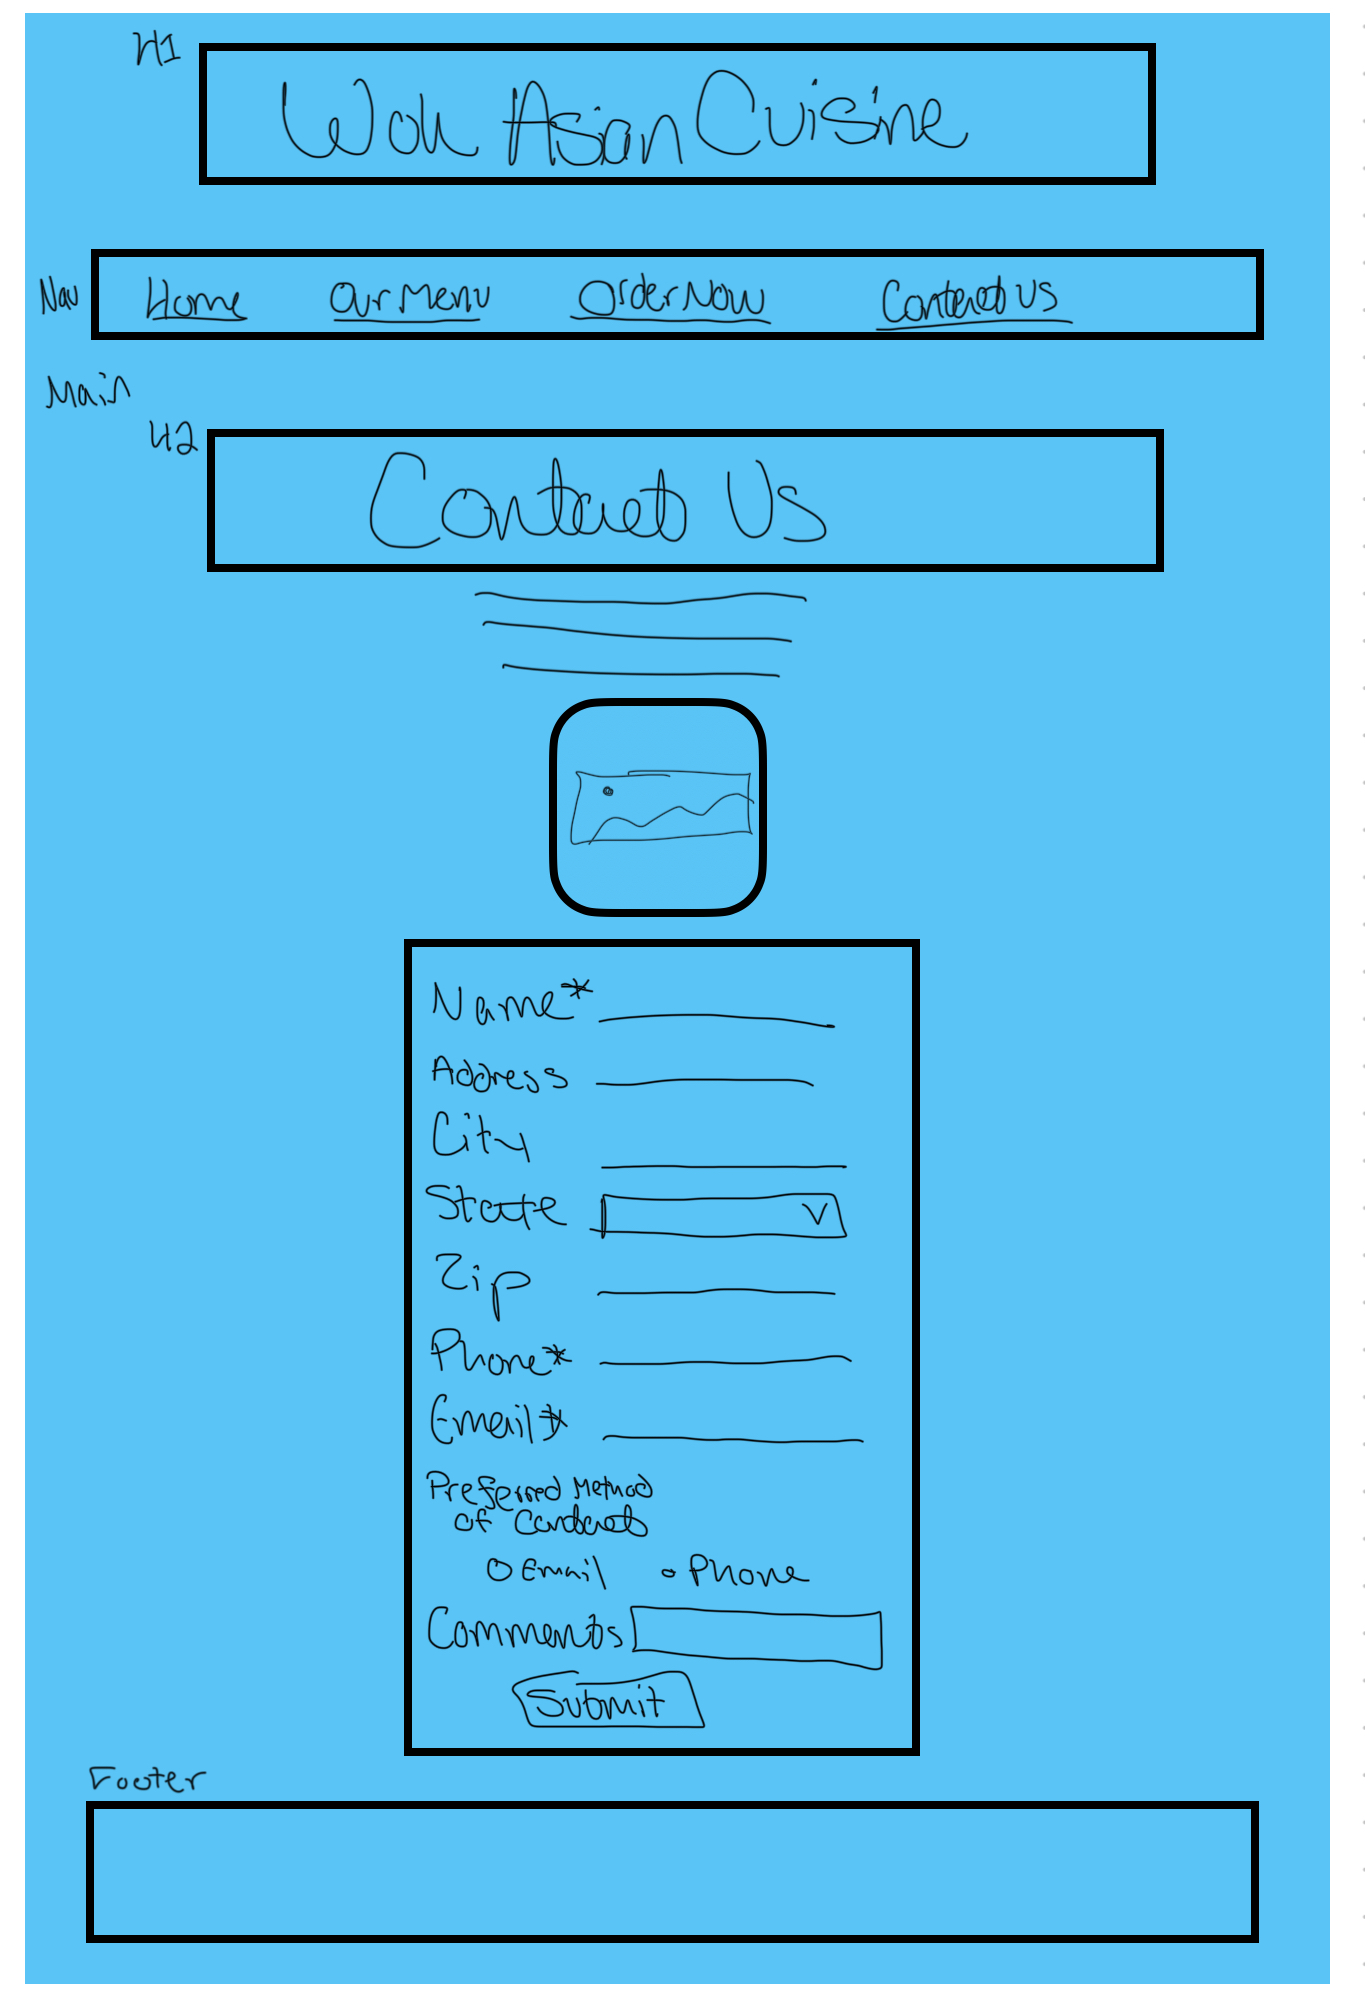 H1
Wok Asian Cuisine
Nav Home Our Menu Order Now Contact Us
Main
H2
Contact Us
Name*
Address
City
State
Zip
Phone*
Email*
Preferred Method
of Contact
Email Phone
Comments
Submit
Footer